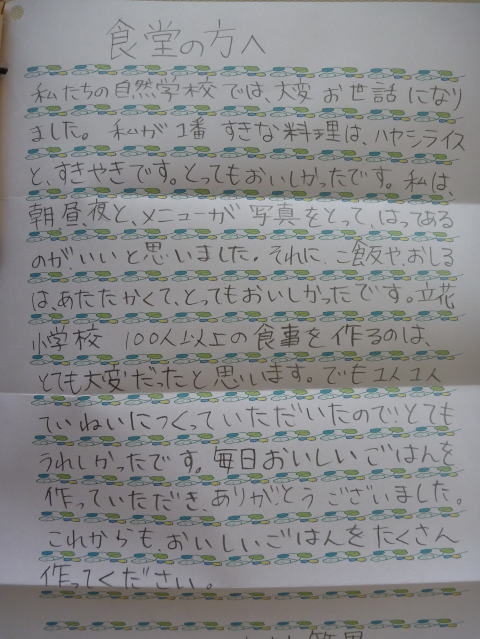 食堂の方へ
私たちの自然学校では、大変お世話になり
ました。私が1番すきな料理は、ハヤシライス
と、すきやきです。とってもおいしかったです。私は、
朝、昼、夜と、メニューが写真をとって、はってある
のがいいと思いました。それに、ご飯や、おしる
は、あたたかくて、とってもおいしかったです。立花
小学校 100人以上の食事を作るのは、
とても大変だったと思います。でも1人1人
ていねいにつくっていただいたのでとても
うれしかったです。毎日おいしいごはんを
作っていただき、ありがとうございました。
これからも、おいしいごはんをたくさん
作ってください。